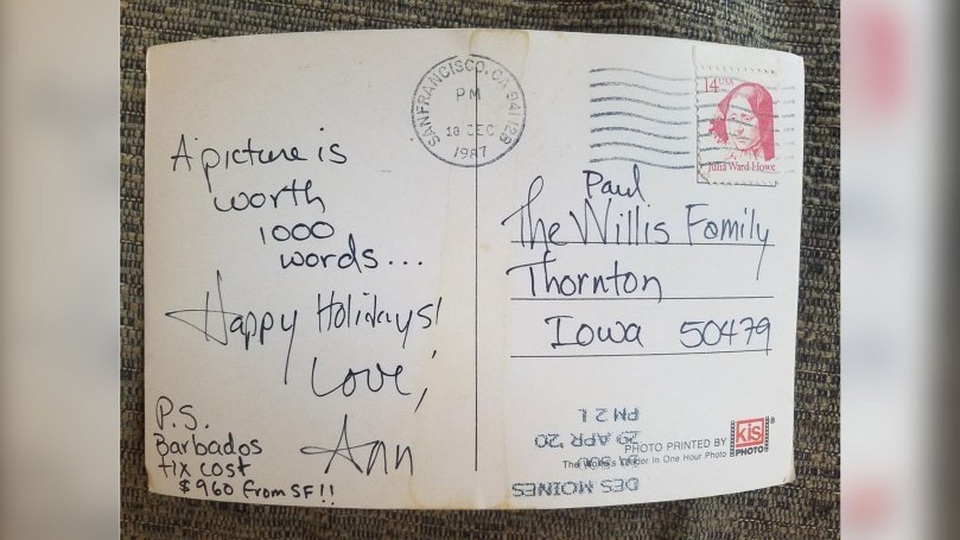 SAN FRANCISCO, CA 941
PM
18 DEC
1987
14 USA
Julia Ward Howe
A picture is
worth
1000
words...
Happy Holidays!
Love,
Ann
P.S.
Barbados
tix cost
$960 from SF!!
Paul
The Willis Family
Thornton
Iowa 50479
PHOTO PRINTED BY
The World's Leader In One Hour Photo
kis
PHOTO
®
DES MOINES
29 APR '20
PM 2 L